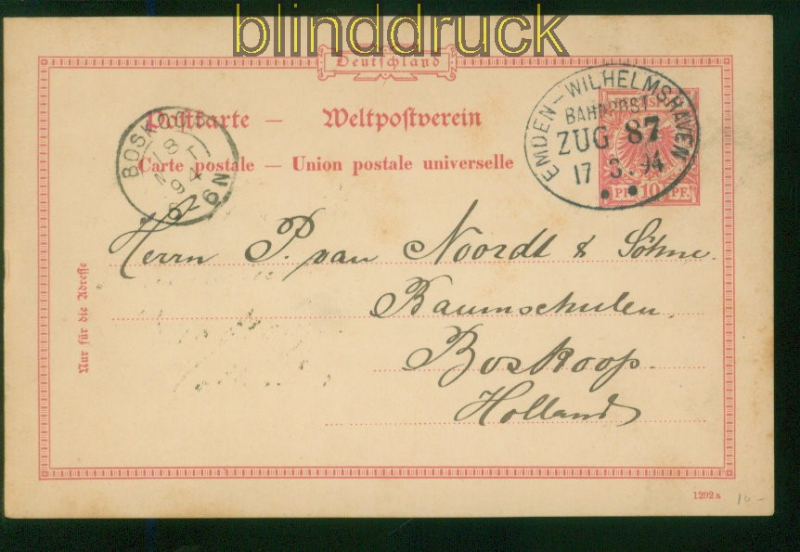 blinddruck
Deutschland
Postkarte — Weltpostverein
Carte postale — Union postale universelle
EMDEN-WILHELMSHAVEN
BAHNPOST
ZUG 87
17 3. 94
10 PF.
BOSKOOP
Nur für die Adresse
Herrn P. van Noordt & Söhne.
Baumschulen,
Boskoop.
Holland
1292a
10-